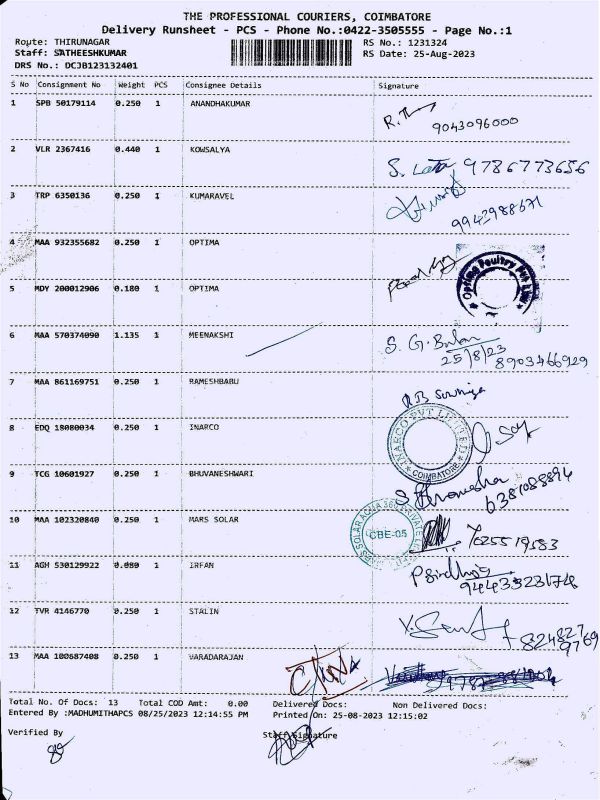 THE PROFESSIONAL COURIERS, COIMBATORE
Delivery Runsheet - PCS - Phone No.:0422-3505555 - Page No.:1
Route: THIRUNAGAR RS No.: 1231324
Staff: SATHEESHKUMAR RS Date: 25-Aug-2023
DRS No.: DCJB123132401
S No Consignment No Weight PCS Consignee Details Signature
1 SPB 50179114 0.250 1 ANANDHAKUMAR
9043096000
2 VLR 2367416 0.440 1 KOWSALYA
S. Lata 9786773656
3 TRP 6350136 0.250 1 KUMARAVEL
9942988671
4 MAA 932355682 0.250 1 OPTIMA
Optima Poultry Pvt Ltd
5 MDY 200012906 0.180 1 OPTIMA
6 MAA 570374090 1.135 1 MEENAKSHI
S. G. Babu
25/8/23 8903466929
7 MAA 861169751 0.250 1 RAMESHBABU
8 EDQ 18080034 0.250 1 INARCO
INARCO PVT LIMITED COIMBATORE
9 TCG 10601927 0.250 1 BHUVANESHWARI
6381088894
10 MAA 102320840 0.250 1 MARS SOLAR
CBE-05
11 AGH 530129922 0.080 1 IRFAN
12 TVR 4146770 0.250 1 STALIN
13 MAA 100687408 0.250 1 VARADARAJAN
Total No. Of Docs: 13 Total COD Amt: 0.00 Delivered Docs: Non Delivered Docs:
Entered By :MADHUMITHAPCS 08/25/2023 12:14:55 PM Printed On: 25-08-2023 12:15:02
Verified By Staff Signature